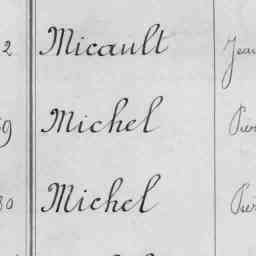 2 Micault Jean
9 Michel Pier
30 Michel Pier